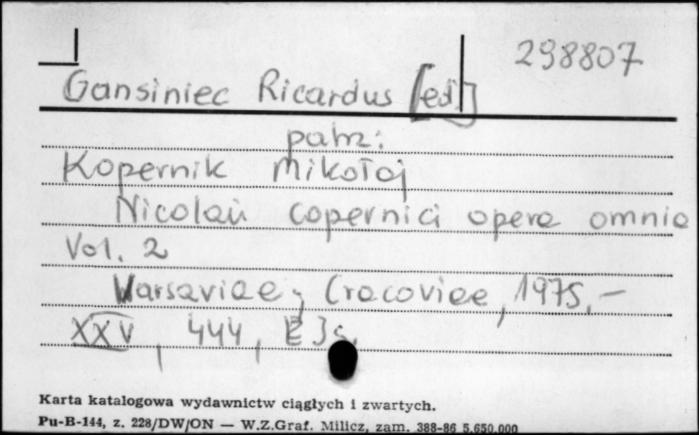 298807
Gansiniec Ricardus [ed.]
patrz:
Kopernik Mikołaj
Nicolaii Copernici opera omnia
Vol. 2
Warsaviae; Cracoviae, 1975,—
XXV, 444,
Karta katalogowa wydawnictw ciągłych i zwartych.
Pu-B-144, z. 228/DW/ON — W.Z.Graf. Milicz, zam. 388-86 5.650.000